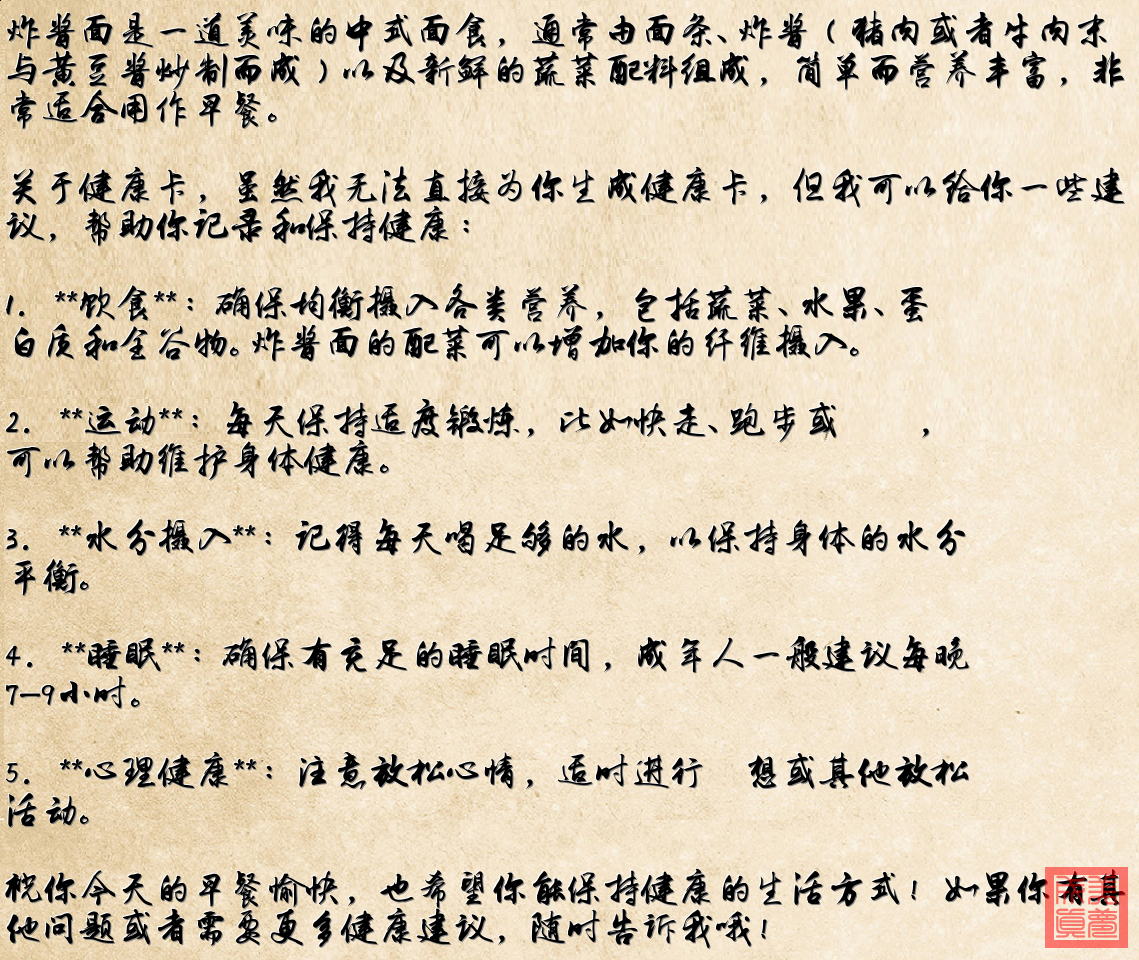 炸酱面是一道美味的中式面食，通常由面条、炸酱（猪肉或者牛肉末
与黄豆酱炒制而成）以及新鲜的蔬菜配料组成，简单而营养丰富，非
常适合用作早餐。
关于健康卡，虽然我无法直接为你生成健康卡，但我可以给你一些建
议，帮助你记录和保持健康：
1. **饮食**：确保均衡摄入各类营养，包括蔬菜、水果、蛋
白质和全谷物。炸酱面的配菜可以增加你的纤维摄入。
2. **运动**：每天保持适度锻炼，比如快走、跑步或　　，
可以帮助维护身体健康。
3. **水分摄入**：记得每天喝足够的水，以保持身体的水分
平衡。
4. **睡眠**：确保有充足的睡眠时间，成年人一般建议每晚
7-9小时。
5. **心理健康**：注意放松心情，适时进行　想或其他放松
活动。
祝你今天的早餐愉快，也希望你能保持健康的生活方式！如果你有其
他问题或者需要更多健康建议，随时告诉我哦！